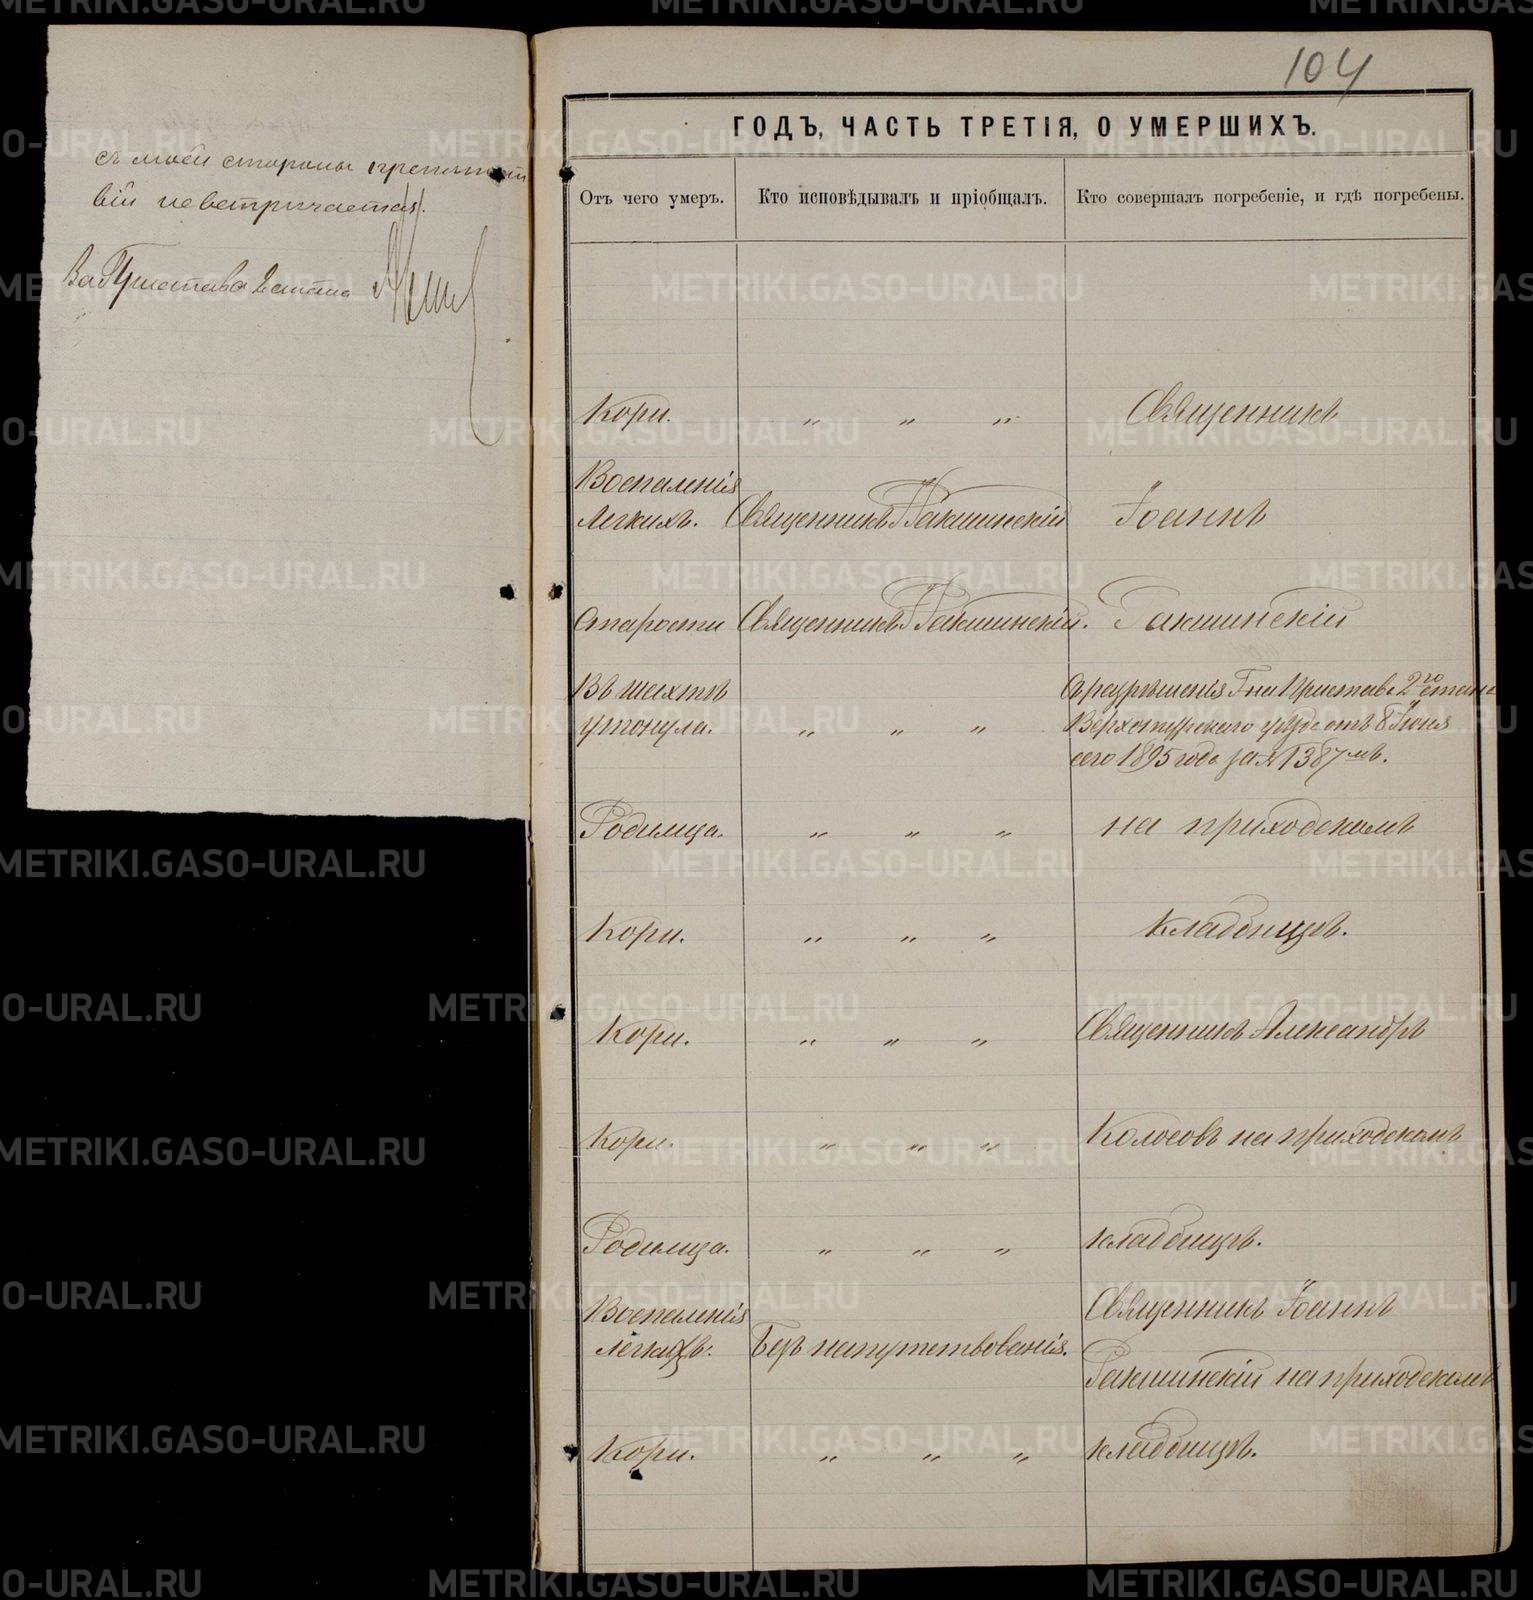 съ моей стороны препятст
вій не встрѣчается.
За Пристава 2 стана
104
ГОДЪ, ЧАСТЬ ТРЕТІЯ, О УМЕРШИХЪ.
Отъ чего умеръ.
Кто исповѣдывалъ и пріобщалъ.
Кто совершалъ погребеніе, и гдѣ погребены.
Кори. „ „ „ Священникъ
Воспаленія
легкихъ. Священникъ Ракшинскій Іоаннъ
Старости Священникъ Ракшинскій. Ракшинскій
Въ шахтѣ Съ разрѣшенія Г на Пристава 2го стана
утонула. „ „ „ Верхотурскаго уѣзда отъ 8 Іюня
сего 1895 года за № 1387мъ.
Родимца. „ „ „ на приходскомъ
Кори. „ „ „ кладбищѣ.
Кори. „ „ „ Священникъ Александръ
Кори. „ „ „ Колосовъ на приходскомъ
Родимца. „ „ „ кладбищѣ.
Воспаленія Священникъ Іоаннъ
легкихъ. Безъ напутствованія.
Ракшинскій на приходскомъ
Кори. „ „ „ кладбищѣ.
METRIKI.GASO-URAL.RU